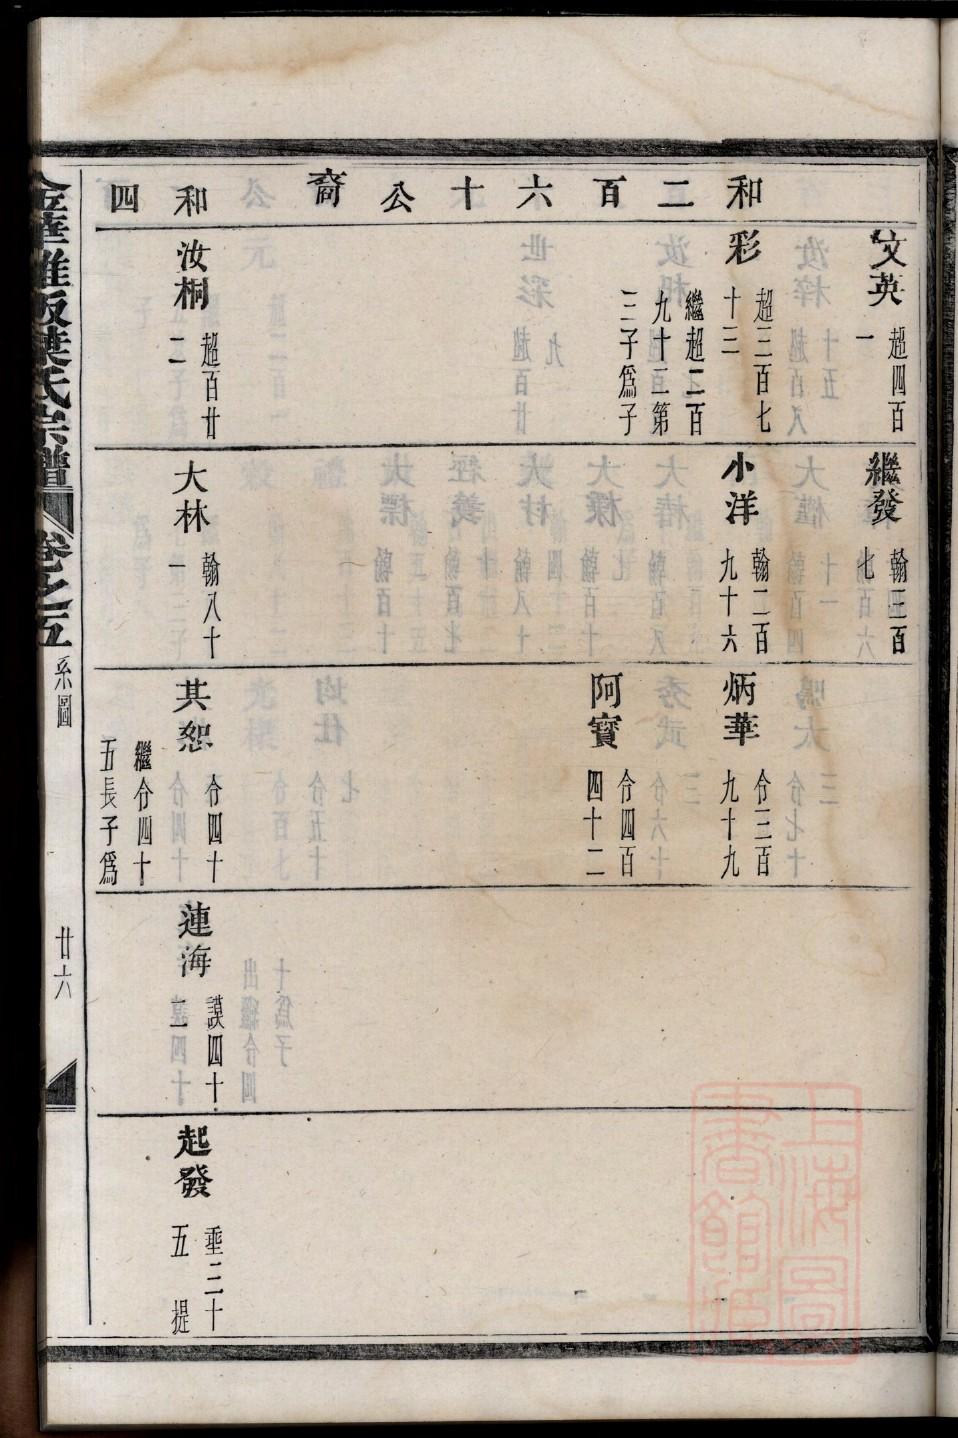 和二百六十公裔和四
文英
超四百
一
彩
超三百七
十三
繼超二百
九十三第
三子爲子
汝桐
超百廿
二
繼發
翰三百
七
小洋
翰二百
九十六
大林
翰八十
一
炳華
佾三百
九十九
阿寶
佾四百
四十二
其恕
佾四十
繼佾四十
五長子爲
蓮海
謨四十
二
起發
垂二十
五 提
金華雅畈葉氏宗譜
卷之五
系圖
廿六
上海圖
書館藏